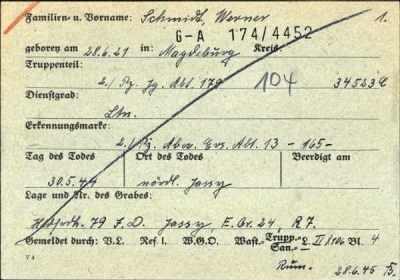 Familien- u. Vorname: Schmidt, Werner 1.
G-A 174/4452
geboren am 28.6.21 in: Magdeburg Kreis:
Truppenteil:
2./Pz. Jg. Abt. 179 104 34523 C
Dienstgrad:
Ltn.
Erkennungsmarke:
2./Pz. Abw. Ers. Abt. 13 -165-
Tag des Todes Ort des Todes Beerdigt am
30.5.44 nördl. Jassy
Lage und Nr. des Grabes:
79 J.D. Jassy, E. Gr. 24 R 7.
Gemeldet durch: V.L. Ref I. W.G.O. Wast.- Trupp.- San.- L. II/106 Bl. 4
V 4 Rum. 28.6.45